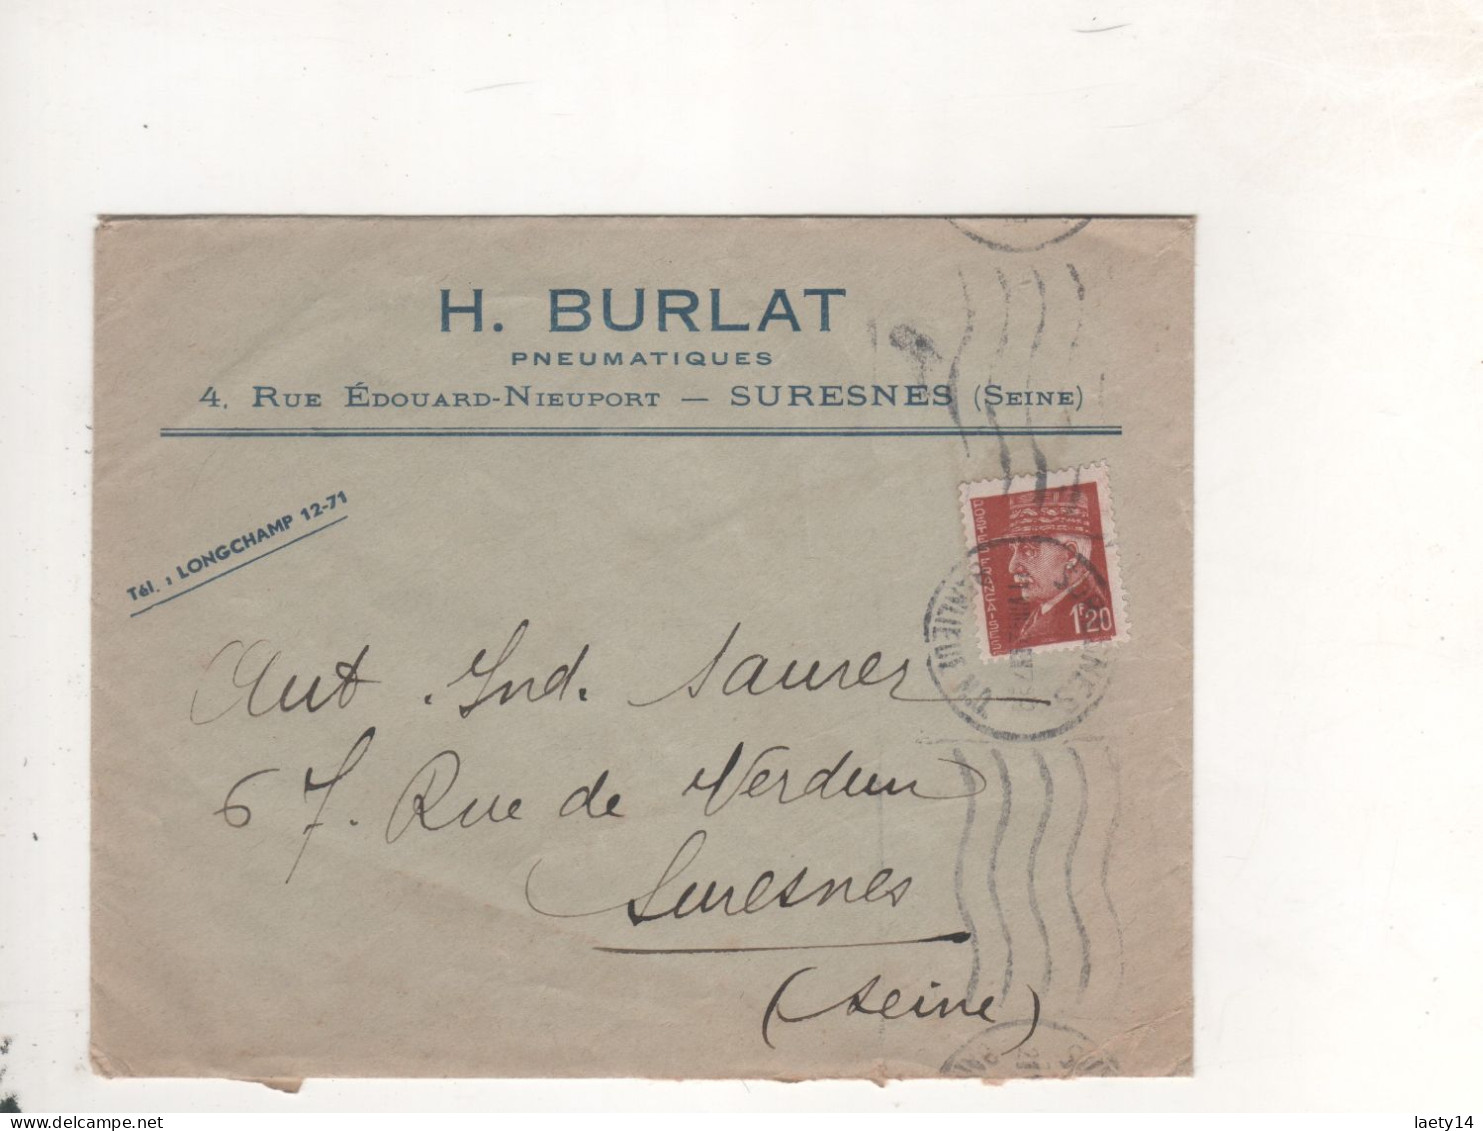 H. BURLAT
PNEUMATIQUES
4, RUE ÉDOUARD-NIEUPORT — SURESNES (SEINE)
Tél. : LONGCHAMP 12-71
POSTES FRANÇAISES
1F20
SURESNES
BANLIEUE
Aut. Ind. Saurer
67. Rue de Verdun
Suresnes
(Seine)
laety14